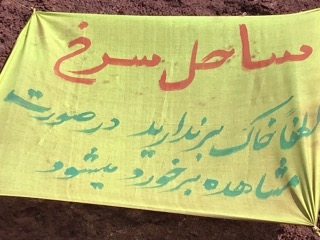 ساحل سرخ
لطفا خاک برندارید در صورت
مشاهده برخورد میشود